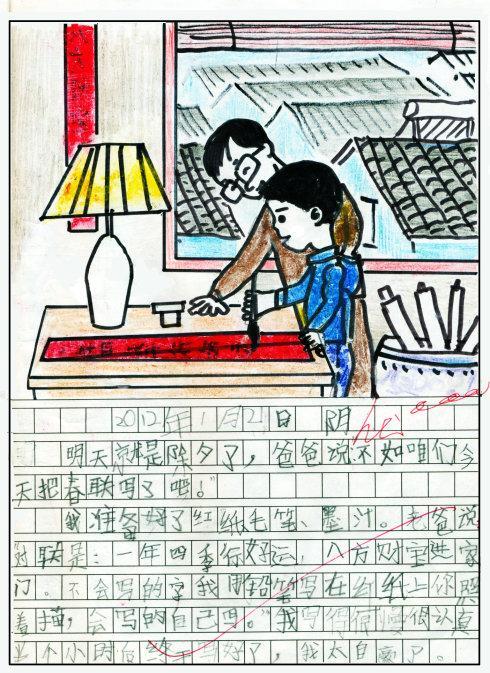 2012年1月21日 阴
明天就是除夕了，爸爸说："不如咱们今
天把春联写了吧。"
我准备好了红纸、毛笔、墨汁。老爸说
对联是：一年四季行好运，八方财宝进家
门。不会写的字我用铅笔写在红纸上你照
着描，会写的自己写。"我写得很慢很认真
个小时后终于写好了，我太自豪了。